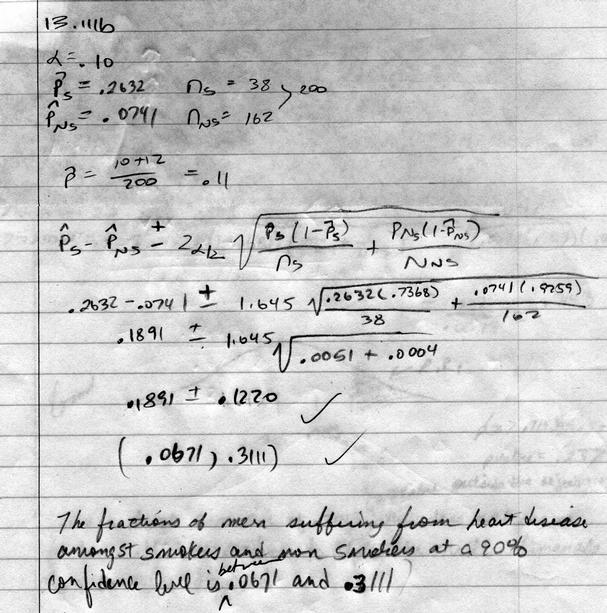 13.111b
α = .10
p̂s = .2632 ns = 38
200
p̂NS = .0741 nNS = 162
p̂ = 10+12/200 = .11
p̂s - p̂NS ± zα/2 √(p̂s(1-p̂s)/ns + p̂NS(1-p̂NS)/nNS)
.2632 - .0741 ± 1.645 √(.2632(.7368)/38 + .0741(.9259)/162)
.1891 ± 1.645 √(.0051 + .0004)
.1891 ± .1220 ✓
(.0671, .3111) ✓
The fractions of men suffering from heart disease
amongst smokers and non smokers at a 90%
confidence level is between .0671 and .3111